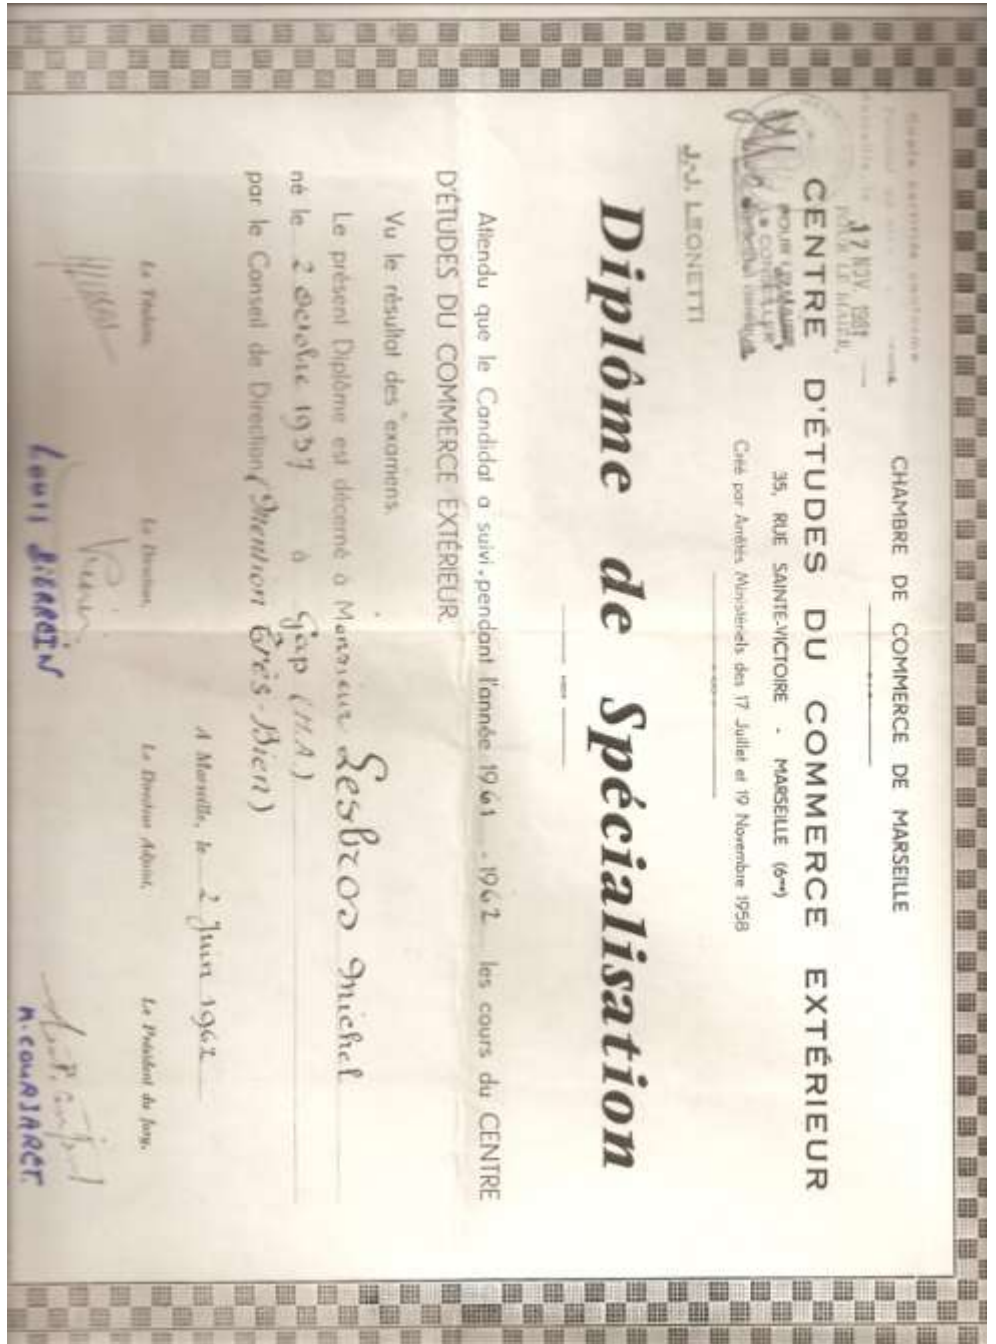 CHAMBRE DE COMMERCE DE MARSEILLE
17 NOV. 1981
POUR LE MAIRE,
CENTRE D'ÉTUDES DU COMMERCE EXTÉRIEUR
35, RUE SAINTE-VICTOIRE - MARSEILLE (6me)
Créé par Arrêtés Ministériels des 17 Juillet et 19 Novembre 1958
J.-J. LEONETTI
Diplôme de Spécialisation
Attendu que le Candidat a suivi pendant l'année 1961 - 1962 les cours du CENTRE
D'ÉTUDES DU COMMERCE EXTÉRIEUR
Vu le résultat des examens.
Le présent Diplôme est décerné à Monsieur Lesbros Michel
né le 2 octobre 1937 à Gap (H.A)
par le Conseil de Direction (Mention Très-Bien)
A Marseille, le 2 Juin 1962
Le Directeur, Le Directeur Adjoint, Le Président du Jury,
Louis